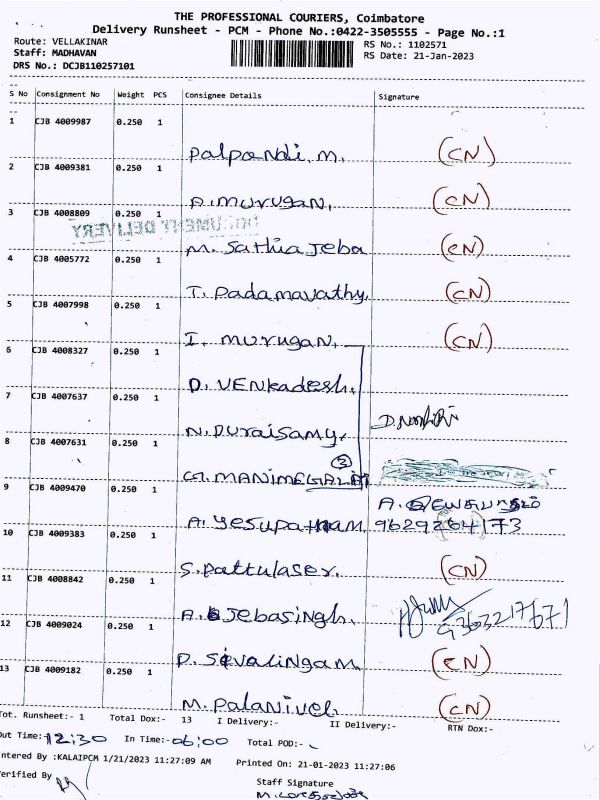 THE PROFESSIONAL COURIERS, Coimbatore
Delivery Runsheet - PCM - Phone No.:0422-3505555 - Page No.:1
Route: VELLAKINAR
RS No.: 1102571
Staff: MADHAVAN
RS Date: 21-Jan-2023
DRS No.: DCJB110257101
S No Consignment No Weight PCS Consignee Details Signature
1 CJB 4009987 0.250 1
Palpandi. M. (CN)
2 CJB 4009381 0.250 1
A. Murugan. (CN)
3 CJB 4008809 0.250 1
DOCUMENT DELIVERY
M. Sathia Jeba (CN)
4 CJB 4005772 0.250 1
T. Padamavathy. (CN)
5 CJB 4007998 0.250 1
I. Murugan. (CN)
6 CJB 4008327 0.250 1
D. VENkadesh.
7 CJB 4007637 0.250 1
N. Duraisamy.
8 CJB 4007631 0.250 1
3
G. MANIMEGALAI
9 CJB 4009470 0.250 1
A. Yesupatham. 9629264173
10 CJB 4009383 0.250 1
S. Pattulaser. (CN)
11 CJB 4008842 0.250 1
A. Jebasingh. 9363217671
12 CJB 4009024 0.250 1
P. Sivalingam. (CN)
13 CJB 4009182 0.250 1
M. Palanivel. (CN)
Tot. Runsheet:- 1 Total Dox:- 13 I Delivery:- II Delivery:- RTN Dox:-
Out Time:- 12:30 In Time:- 06:00 Total POD:-
ntered By :KALAIPCM 1/21/2023 11:27:09 AM Printed On: 21-01-2023 11:27:06
erified By
Staff Signature